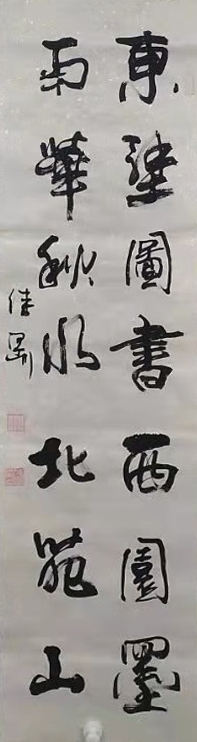 東壁圖書西園墨
南華秋水北苑山